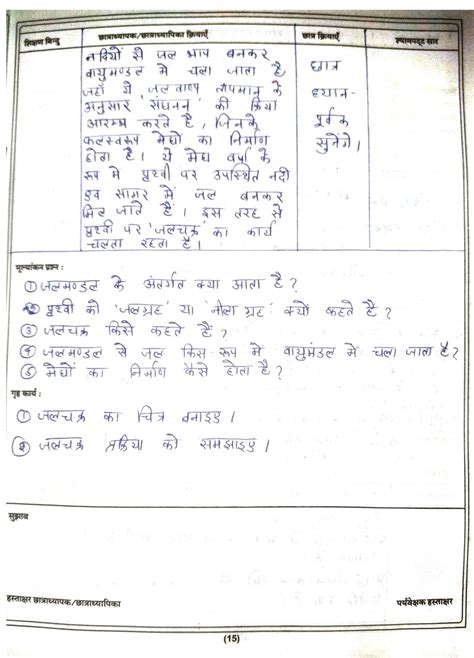 शिक्षण बिन्दु छात्राध्यापक/छात्राध्यापिका क्रियाएँ छात्र क्रियाएँ श्यामपट्ट सार
नदियों से जल भाप बनकर
वायुमण्डल में चला जाता है
जहाँ ये जलवाष्प तापमान के
अनुसार संघनन की क्रिया
आरम्भ करते हैं, जिनके
फलस्वरूप मेघों का निर्माण
होता है। ये मेघ वर्षा के
रूप में पृथ्वी पर उपस्थित नदी
एवं सागर में जल बनकर
मिल जाते हैं। इस तरह से
पृथ्वी पर 'जलचक्र' का कार्य
चलता रहता है।
छात्र
ध्यान-
पूर्वक
सुनेंगे।
मूल्यांकन प्रश्न :
① जलमण्डल के अंतर्गत क्या आता है?
② पृथ्वी को 'जलग्रह' या 'नीला ग्रह' क्यों कहते हैं?
③ जलचक्र किसे कहते हैं?
④ जलमण्डल से जल किस रूप में वायुमंडल में चला जाता है?
⑤ मेघों का निर्माण कैसे होता है?
गृह कार्य :
① जलचक्र का चित्र बनाइए।
② जलचक्र प्रक्रिया को समझाइए।
सुझाव
हस्ताक्षर छात्राध्यापक/छात्राध्यापिका पर्यवेक्षक हस्ताक्षर
(15)